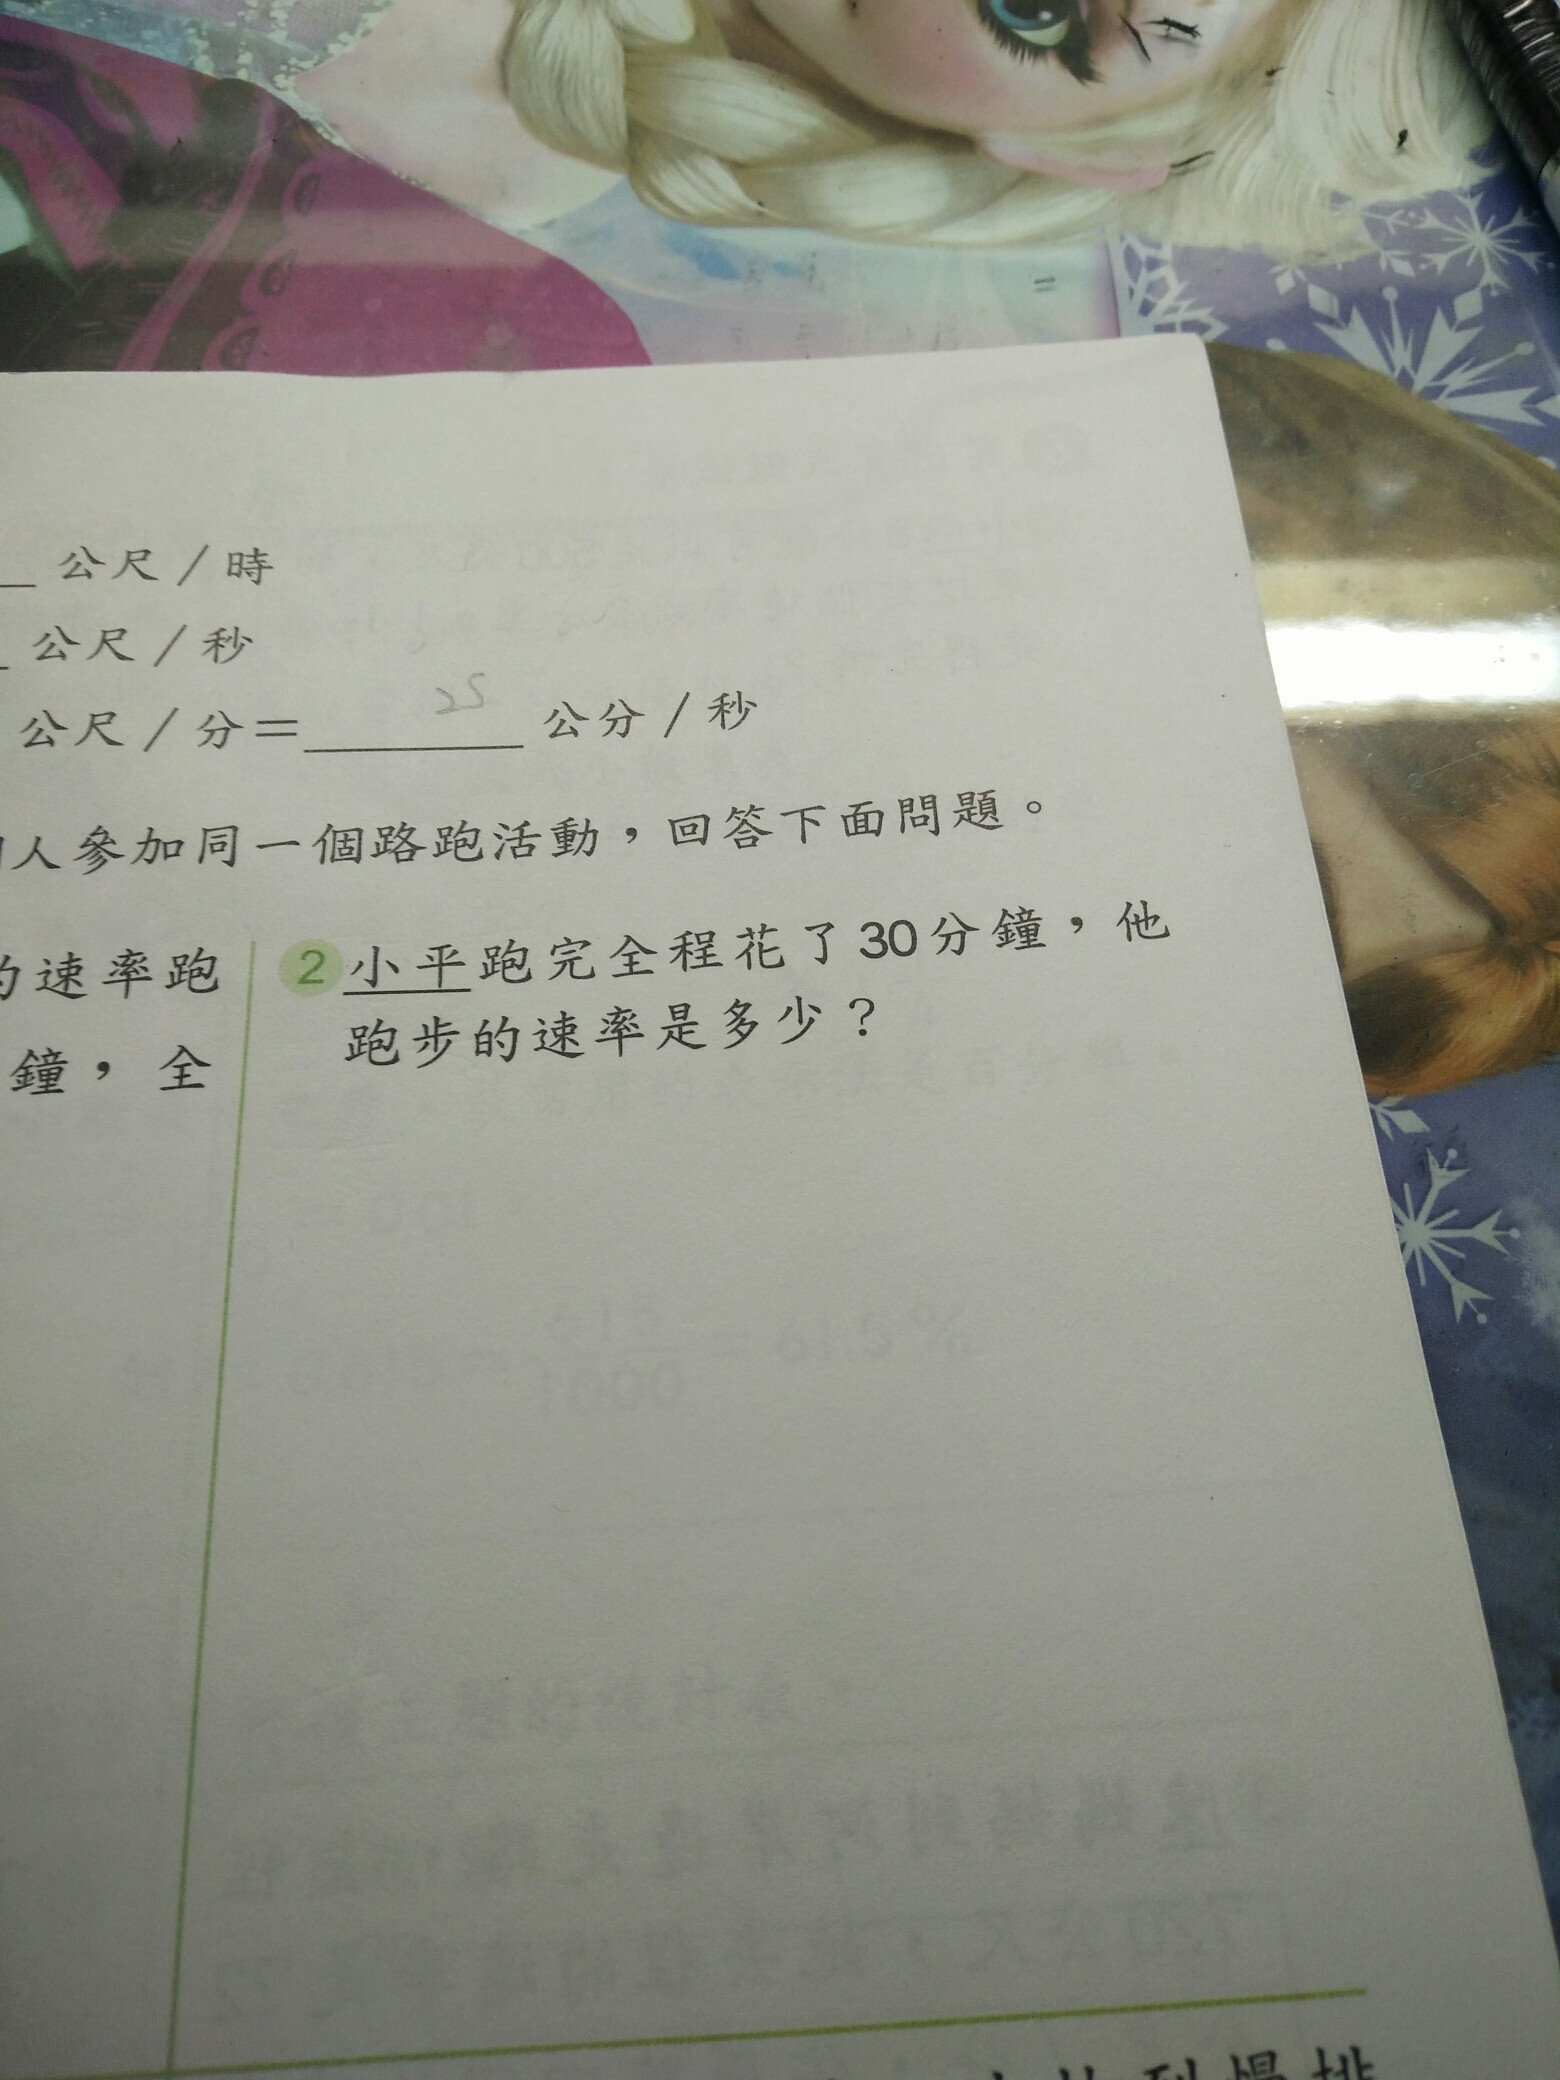 公尺／時
公尺／秒
公尺／分＝ 25 公分／秒
人參加同一個路跑活動，回答下面問題。
的速率跑
鐘，全
2 小平跑完全程花了30分鐘，他
跑步的速率是多少？